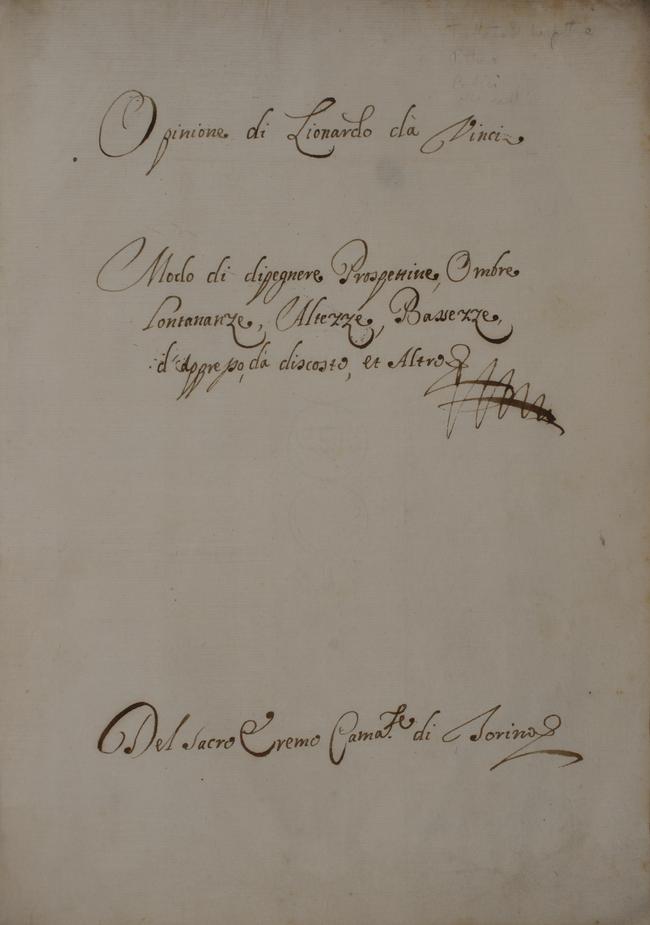 Opinione di Lionardo dà Vinci
Modo di dissegnere Prospettive, Ombre
Lontananze, Altezze, Bassezze,
d'appresso, dà discosto, et Altro
Del Sacro Eremo Cama.se di Torino